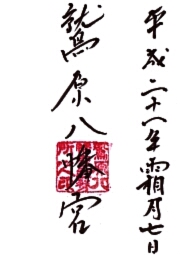 平成二十八年霜月七日
鷲原八幡宮